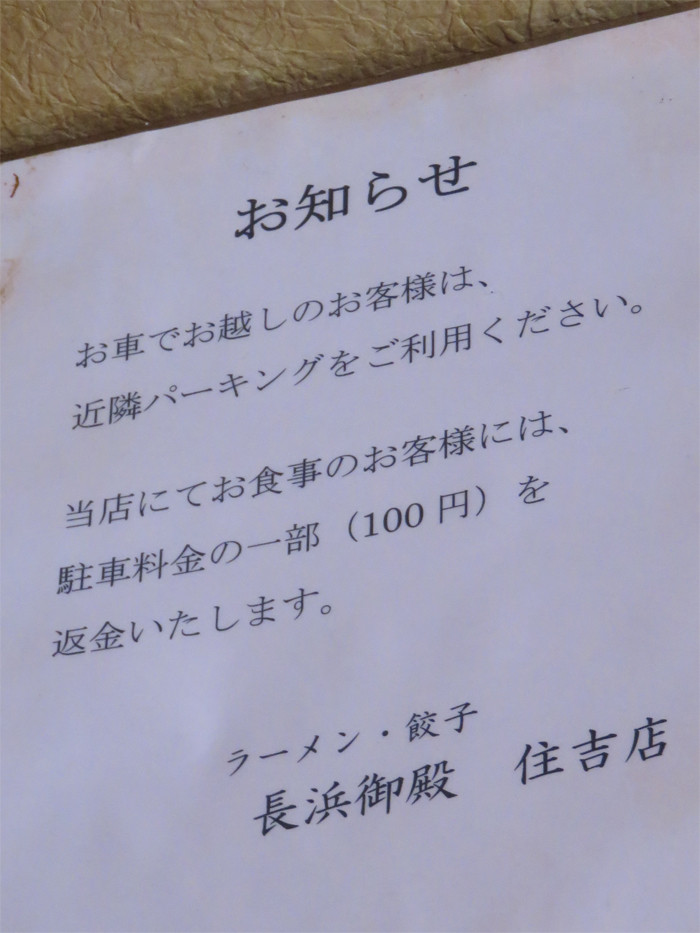 お知らせ
お車でお越しのお客様は、
近隣パーキングをご利用ください。
当店にてお食事のお客様には、
駐車料金の一部（100円）を
返金いたします。
ラーメン・餃子
長浜御殿　住吉店